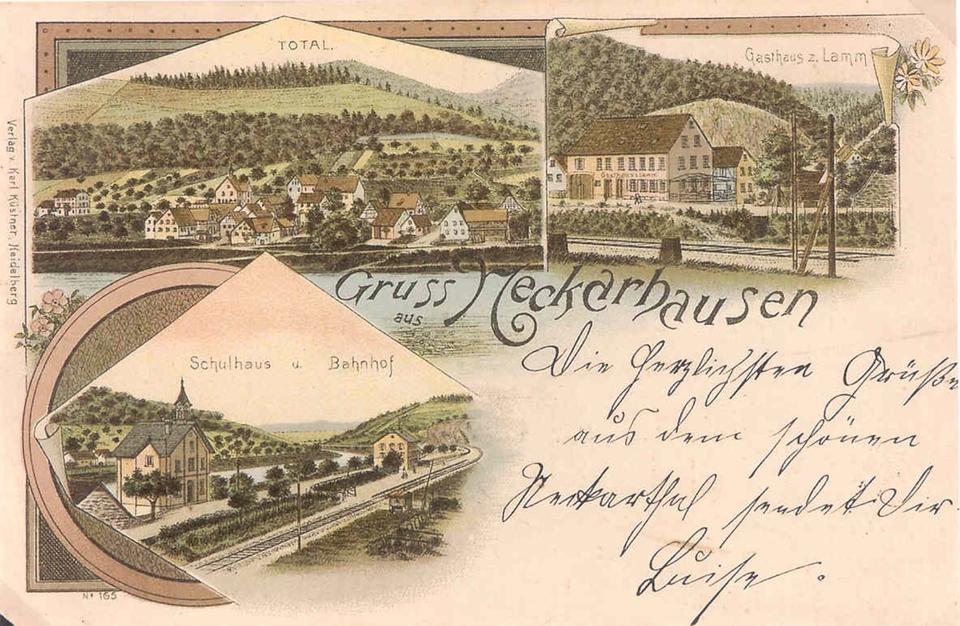 TOTAL.
Gasthaus z. Lamm
Gasthaus z. Lamm
Verlag v. Karl Küstner, Heidelberg
Gruss aus Neckarhausen
Schulhaus u. Bahnhof
Die herzlichsten Grüße
aus dem schönen
Neckarthal sendet Dir
Luise.
No 165